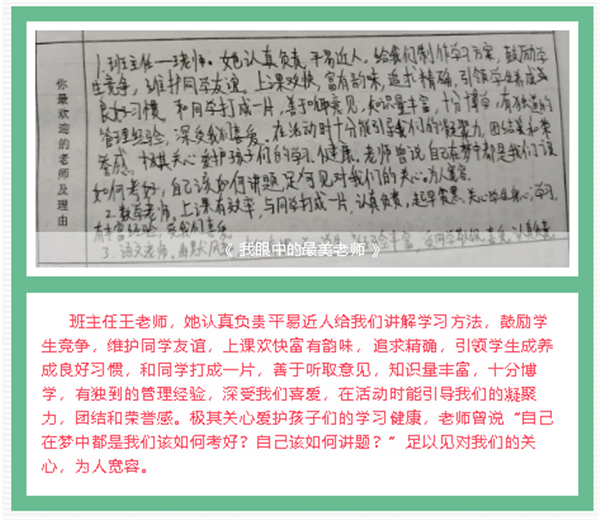 你最欢迎的老师及理由
1.班主任——王老师。她认真负责,平易近人,给我们制作学习方案,鼓励学
生竞争,维护同学友谊。上课欢快,富有韵味,追求精确,引领学生养成
良好习惯。和同学打成一片,善于听取意见,知识量丰富,十分博学,有独道的
管理经验,深受我们喜爱。在活动时十分能引导我们的凝聚力,团结美和荣
誉感。极其关心爱护孩子们的学习、健康。老师曾说自己在梦中都是我们该
如何考好,自己该如何讲题,足何见对我们的关心。为人宽容。
2.数学老师。上课有效率,与同学打成一片,认真负责,起早贪黑,关心学生身心,学习
有丰富经验,受我们喜爱。
3.语文老师。幽默风
《 我眼中的最美老师 》
班主任王老师,她认真负责平易近人给我们讲解学习方法,鼓励学
生竞争,维护同学友谊,上课欢快富有韵味,追求精确,引领学生成养
成良好习惯,和同学打成一片,善于听取意见,知识量丰富,十分博
学,有独到的管理经验,深受我们喜爱,在活动时能引导我们的凝聚
力,团结和荣誉感。极其关心爱护孩子们的学习健康,老师曾说“自己
在梦中都是我们该如何考好?自己该如何讲题?”足以见对我们的关
心,为人宽容。